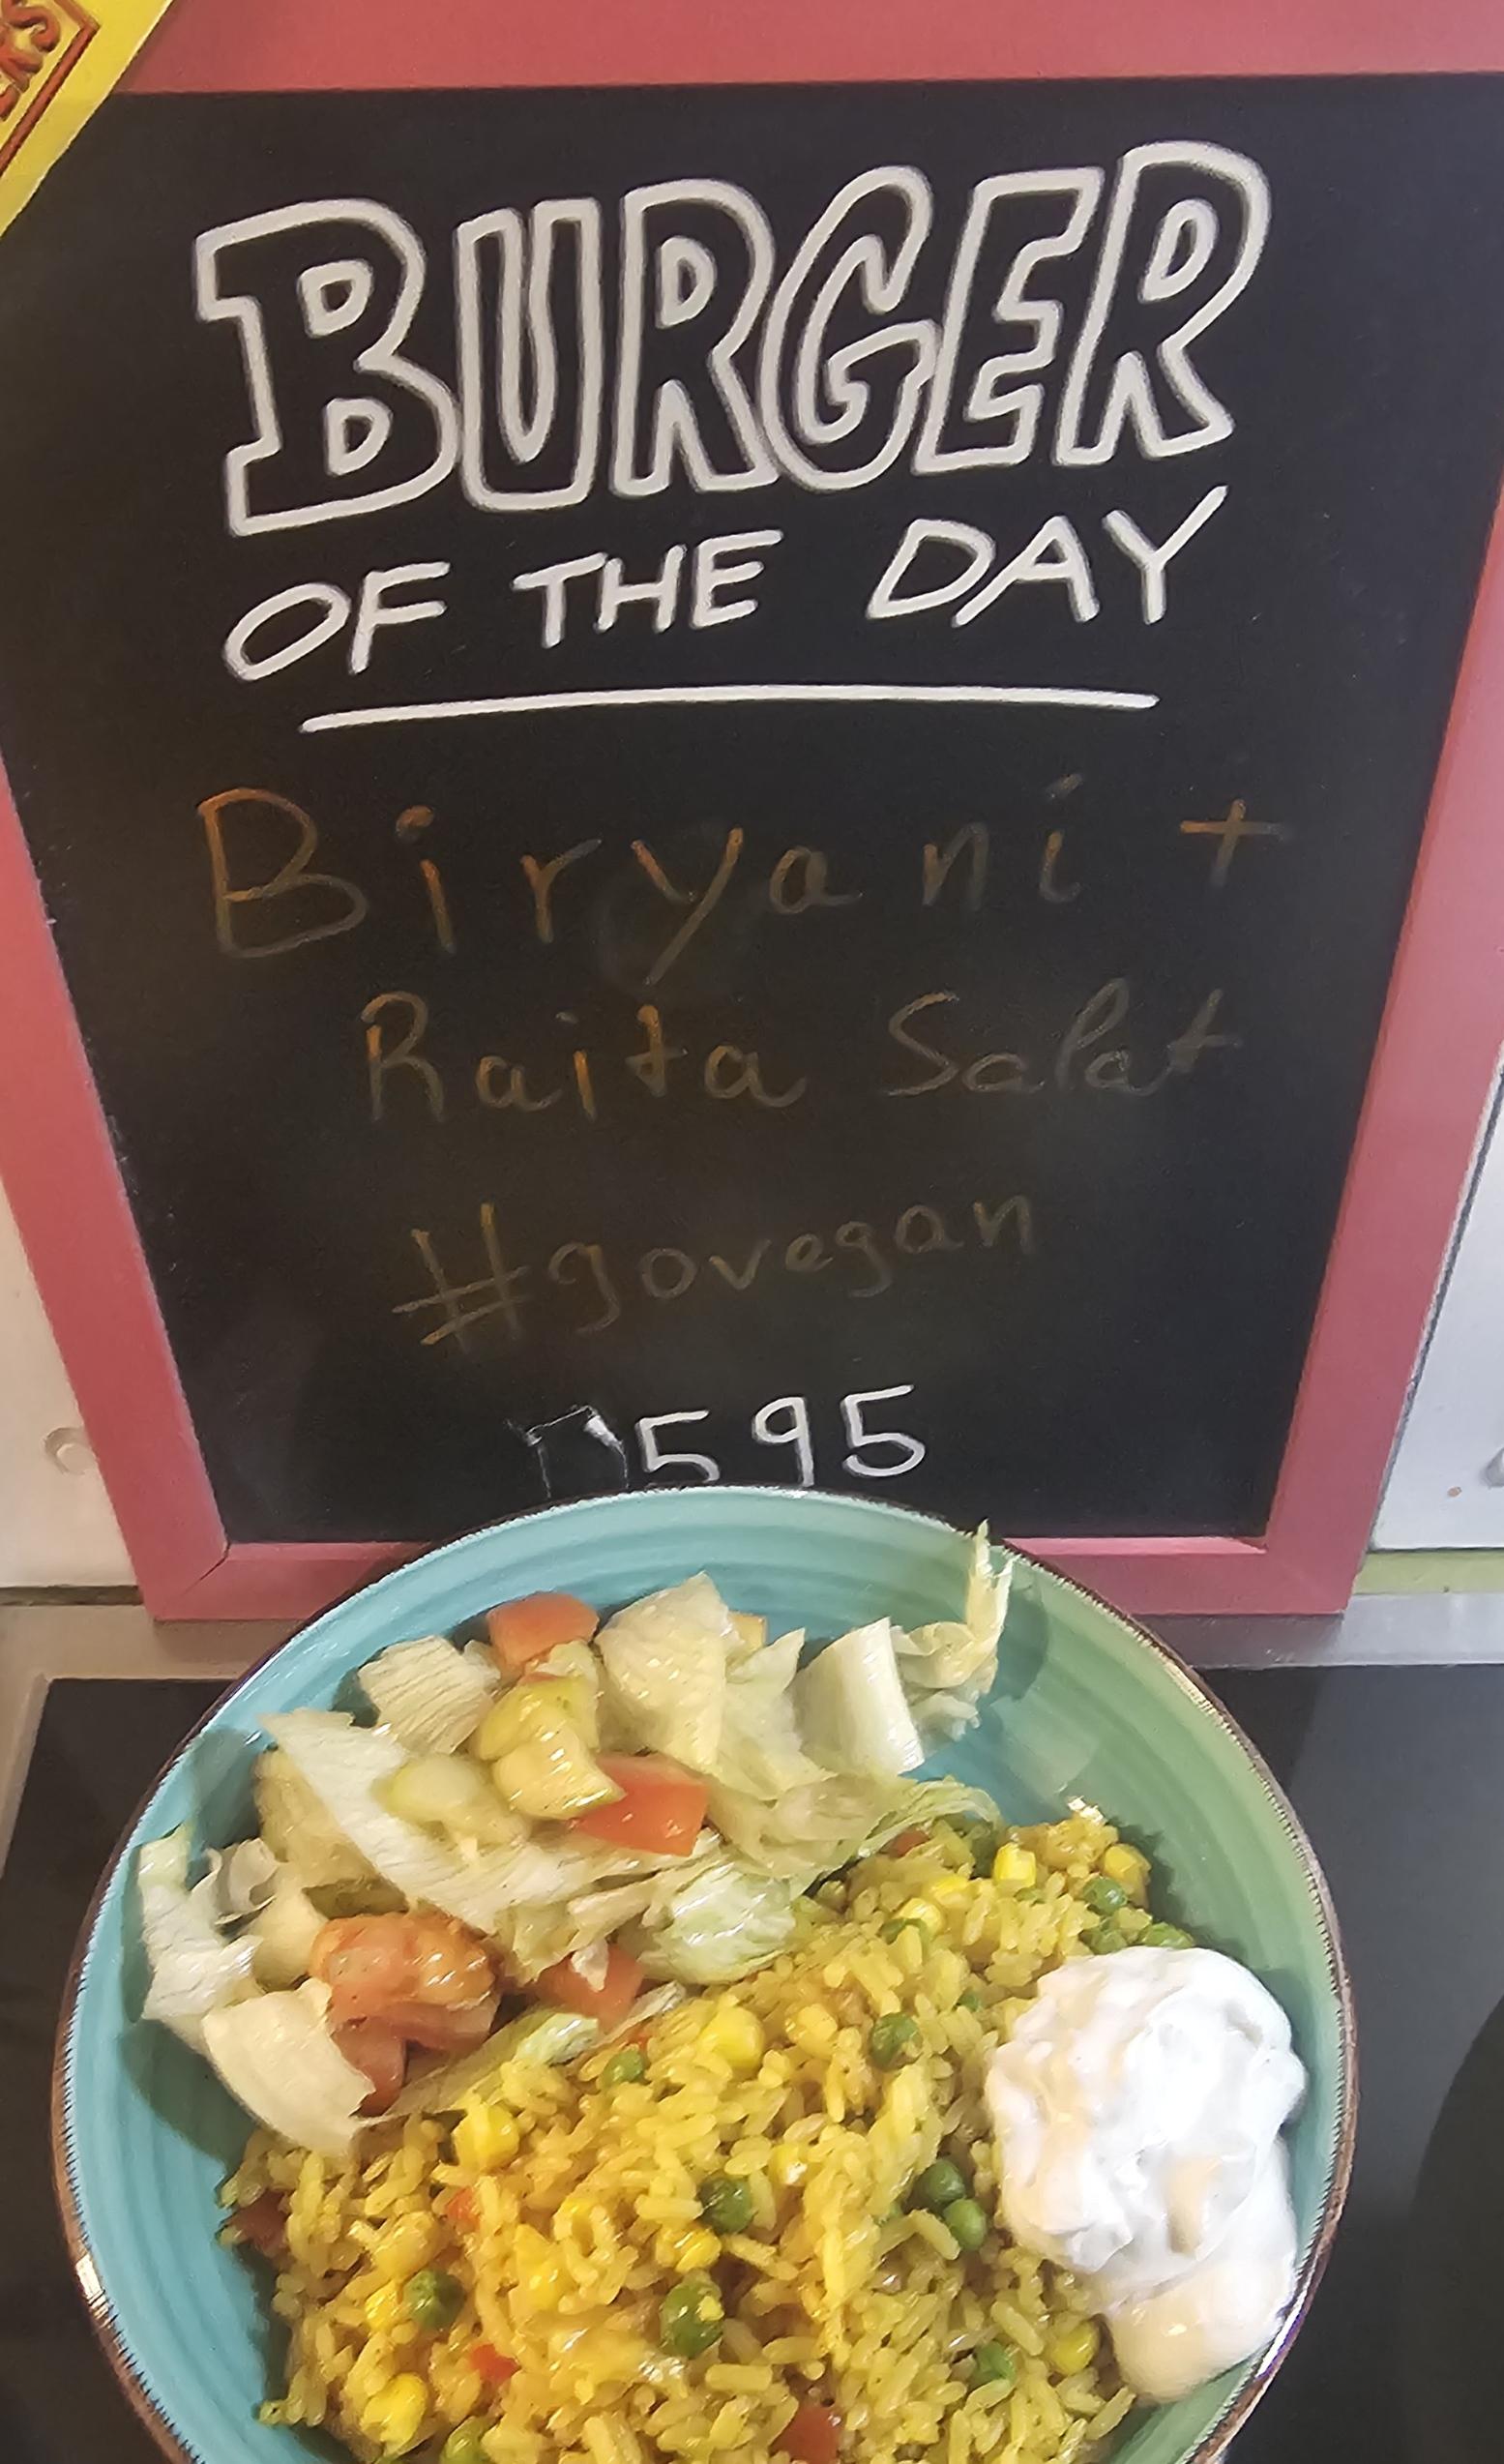 BURGER
OF THE DAY
Biryani +
Raita Salat
#govegan
595